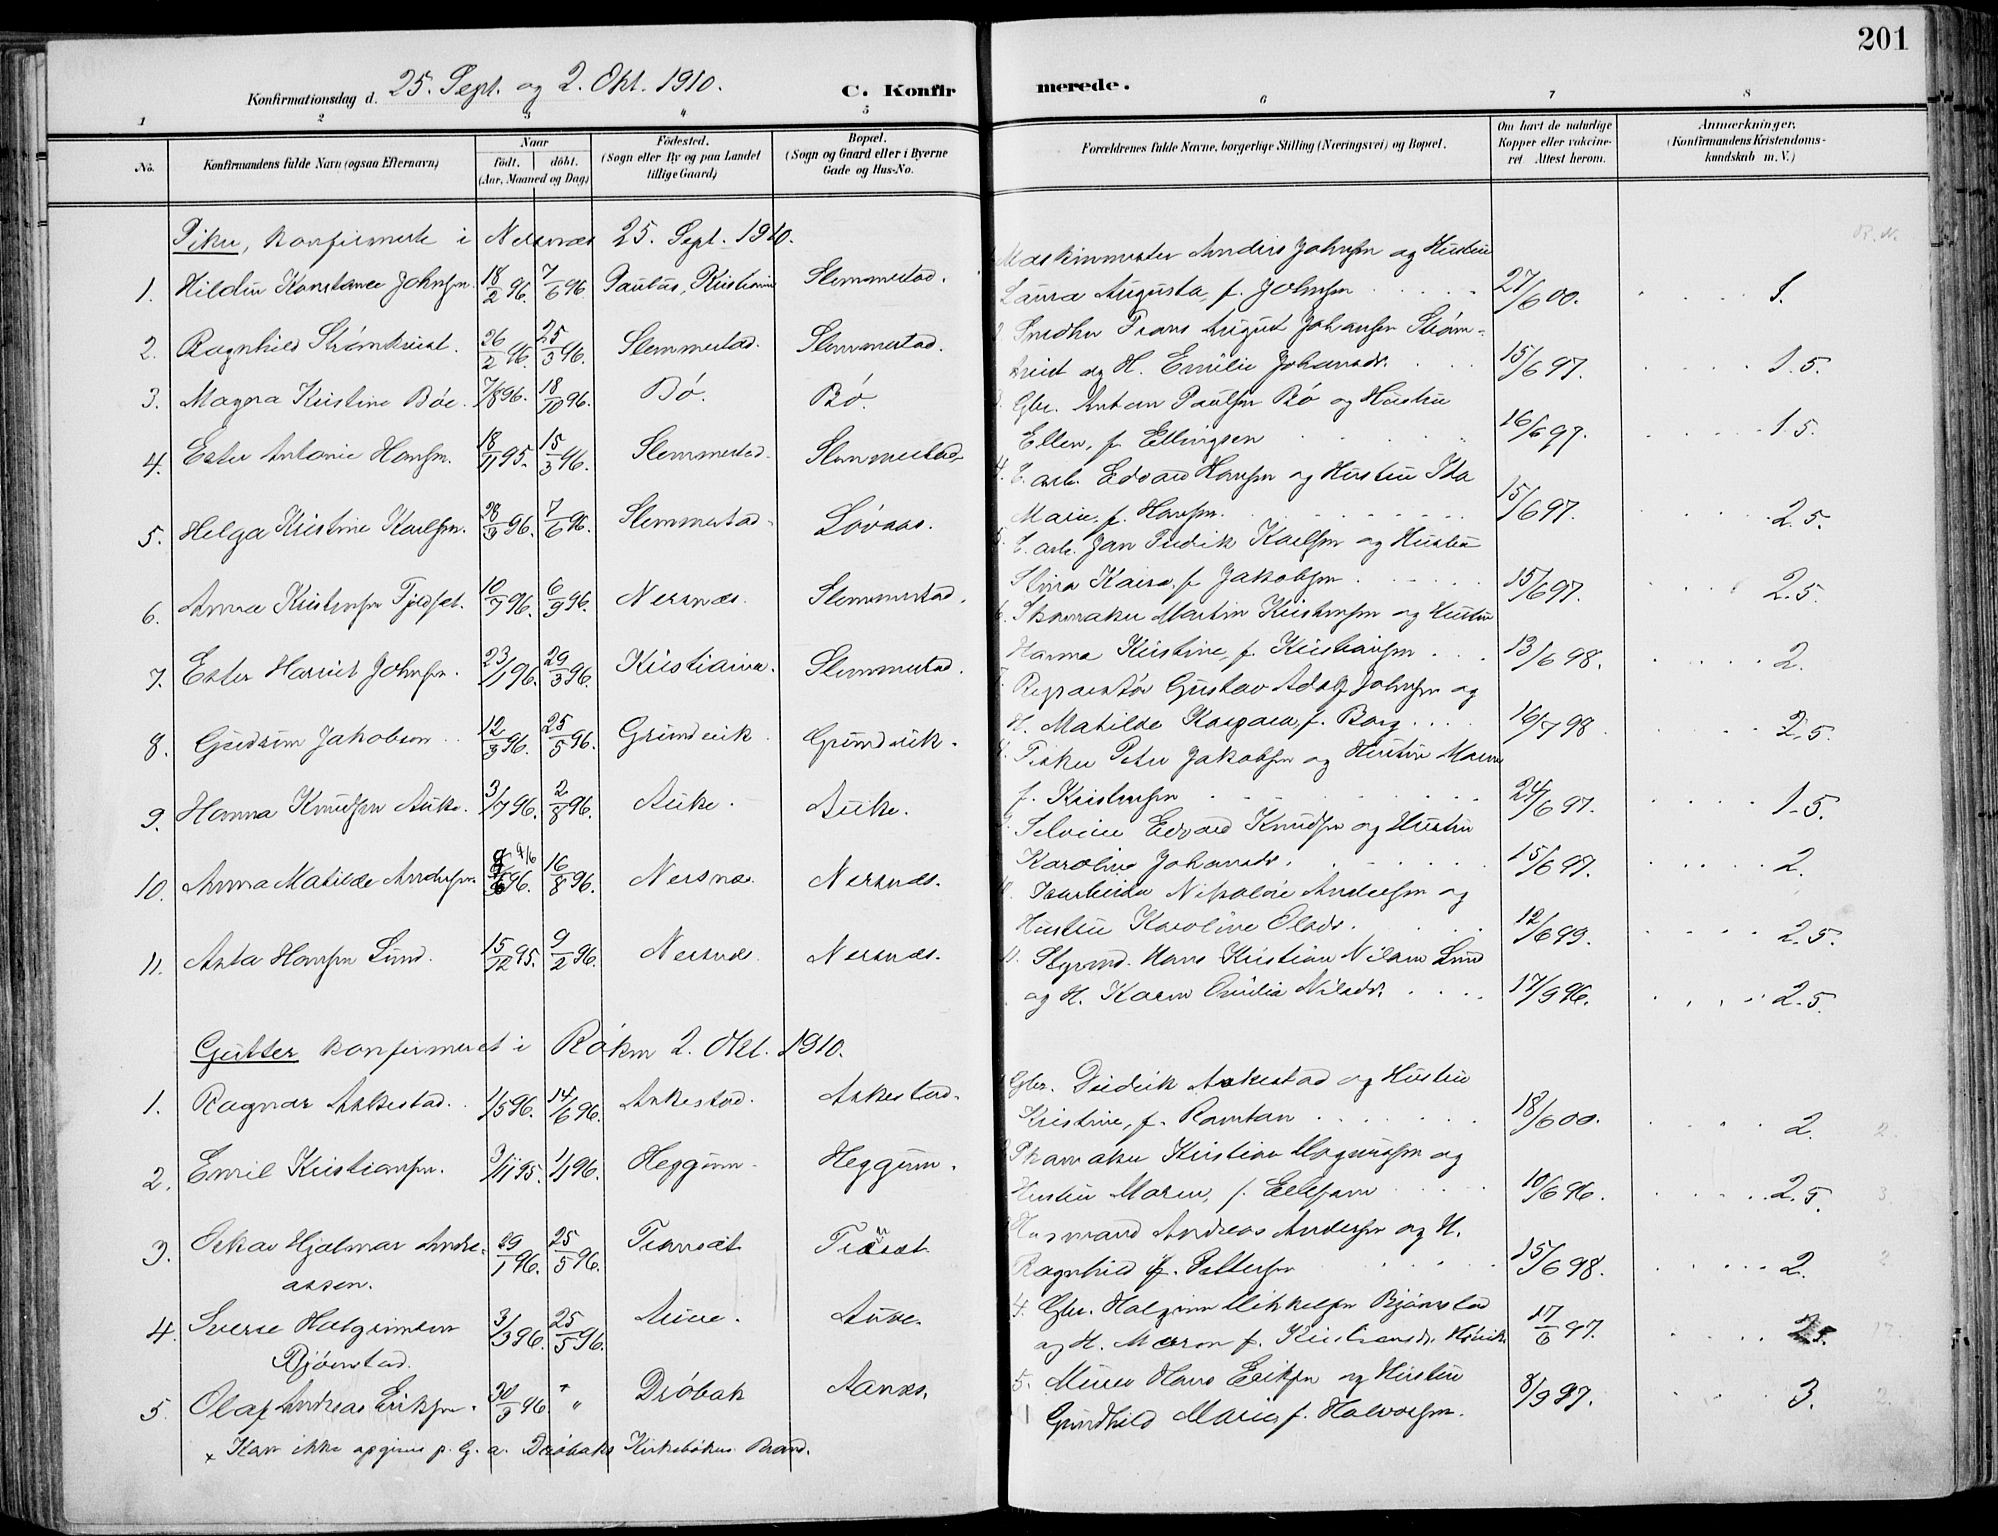 201
Konfirmationsdag d. 25. Sept. og 2. Okt. 1910. C. Konfir merede.
1 2 3 4 5 6 7 8
No. Konfirmandens fulde Navn (ogsaa Efternavn) Naar født. døbt. (Aar, Maaned og Dag.) Fødested. (Sogn eller By og paa Landet tillige Gaard) Bopæl. (Sogn og Gaard eller i Byerne Gade og Hus-No. Forældrenes fulde Navne, borgerlige Stilling (Næringsvei) og Bopæl. Om havt de naturlige Kopper eller vakcineret. Attest herom. Anmærkninger. (Konfirmandens Kristendomskundskab m. V.)
Piker, konfirmerte i Nersnæs 25. Sept. 1910.
Maskinmester Anders Johnsen og Hustru
1. Hildur Konstance Johnsen. 18/2 96. 7/6 96. Paulus, Kristiania Slemmestad. Laura Augusta, f. Johnsen 27/6 00. 1.
Snedker Frans August Johansen Strøm-
2. Ragnhild Strømkvist. 26/2 96. 25/3 96. Slemmestad. Slemmestad. kvist og H. Emilie Johansdr. 15/6 97. 1.5.
Gbr. Anton Paulsen Bø og Hustru
3. Magna Kristine Bøe. 7/8 96. 18/10 96. Bø. Bø. Ellen, f. Ellingsen 16/6 97. 1.5.
4. F. arb. Edvard Hansen og Hustru Ida
4. Ester Antonie Hansen. 18/11 95. 15/3 96. Slemmestad. Slemmestad. Marie, f. Hansen. 15/6 97. 2.5.
5. F. arb. Jan Fredrik Karlsen og Hustru
5. Helga Kristine Karlsen. 28/3 96. 7/6 96. Slemmestad. Løvaas. Kaisa, f. Jakobsen 15/6 97. 2.5.
6. Skomaker Martin Kristensen og Hustru
6. Anna Kristensen Fjeldsæt. 10/7 96. 6/9 96. Nersnæs. Slemmestad. Hanna Kristine, f. Kristiansen 13/6 98. 2.
7. Reparatør Gustav Adolf Johnsen og
7. Ester Harriet Johnsen. 23/1 96. 29/3 96. Kristiania. Slemmestad. H. Matilde f. Borg 16/7 98 2.5.
8. Fisker Peter Jakobsen og Hustru Maren
8. Gudrun Jakobsen 12/3 96. 25/5 96. Grundvik. Grundvik. f. Kristensen 24/6 97. 1.5.
9. Selveier Edvard Knudsen og Hustru
9. Hanna Knudsen Auke. 3/7 96. 2/8 96. Auke. Auke. Karoline Johansdr. 15/6 97. 2.
Isarbeider Nikolai Andersen og
10. Anna Matilde Andersen. 96. 16/8 96. Nersnæs. Nersnæs. Hustru Karoline Olsdr. 12/6 99. 2.5.
11. Styrmd. Hans Kristian Nilsen Lund
11. Asta Hansen Lund. 15/12 95. 9/2 96. Nersnæs. Nersnæs. og H. Karen Emilie Nilsdr. 17/9 96. 2.5.
Gutter konfirmeret i Røken 2. Okt. 1910.
Gbr. Diderik Aakestad og Hustru
1. Ragnar Aakestad. 1/5 96. 14/6 96. Aakestad. Aakestad. Kristine, f. Ramton 18/6 00. 2. 2.
Skomaker Kristian Magnussen og
2. Emil Kristiansen. 3/11 95. 1/1 96. Heggum. Heggum. Hustru Maren, f. Ellefsen 10/6 96. 2.5. 3.
Husmand Andreas Andersen og H.
3. Oskar Hjalmar Andre- 29/1 96. 25/5 96. Transæt Transæt Ragnhild f. Pettersen 15/6 98. 2. 2
assen.
4. Gbr. Halgrim Mikkelsen Bjørnstad
4. Sverre Halgrimsen 3/3 96. 25/5 96. Auve. Auve. og H. Maren f. Kristiansdr. Høvik 17/6 97. 2.5.
Bjørnstad.
5. Murer Hans Eriksen og Hustru
5. Olaf Andreas Eriksen. 30/3 96. × " Drøbak Aaraas. Gundhild Marie, f. Halvorsen. 8/9 97. 3. 2.
× Kan ikke opgives p. G. a. Drøbaks Kirkebøkers Brand.